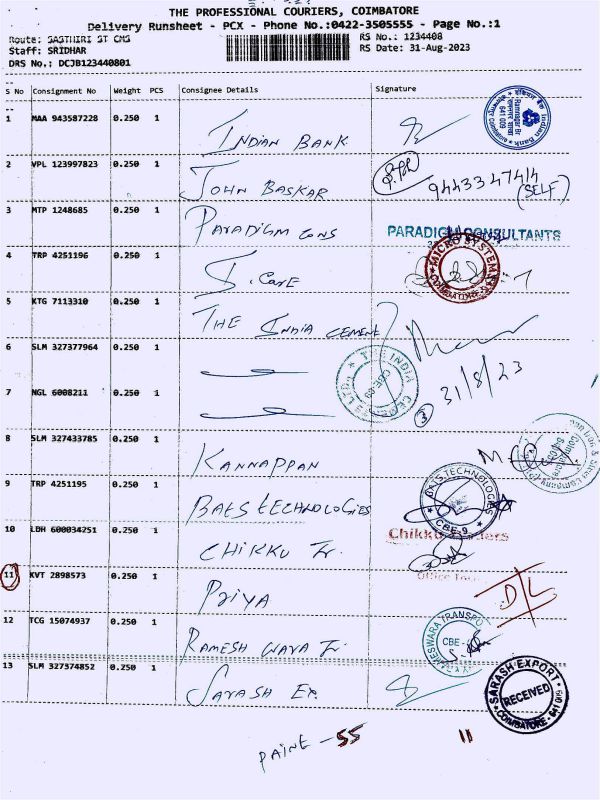 THE PROFESSIONAL COURIERS, COIMBATORE
Delivery Runsheet - PCX - Phone No.:0422-3505555 - Page No.:1
Route: SASTHIRI ST CMS
RS No.: 1234408
Staff: SRIDHAR
RS Date: 31-Aug-2023
DRS No.: DCJB123440801
S No Consignment No Weight PCS Consignee Details Signature
1 MAA 943587228 0.250 1 INDIAN BANK
2 VPL 123997823 0.250 1 JOHN BASKAR 9443347414 (SELF)
3 MTP 1248685 0.250 1 PARADIGM CONS PARADIGM CONSULTANTS
4 TRP 4251196 0.250 1 I.CARE MICRO SYSTEM
5 KTG 7113310 0.250 1 THE INDIA CEMENT
6 SLM 327377964 0.250 1 THE INDIA
7 NGL 6008211 0.250 1 3 31/8/23
8 SLM 327433785 0.250 1 KANNAPPAN
9 TRP 4251195 0.250 1 BATS TECHNOLOGIES BATS TECHNOLOGIES CBE-9
10 LDH 600034251 0.250 1 CHIKKU Tr.
11 KVT 2898573 0.250 1 PRIYA D/L
12 TCG 15074937 0.250 1 RAMESHWARA Tr. CBE
13 SLM 327374852 0.250 1 SARASH EX. SARASH EXPORT RECEIVED COIMBATORE - 641 009
PAINE - 55 11